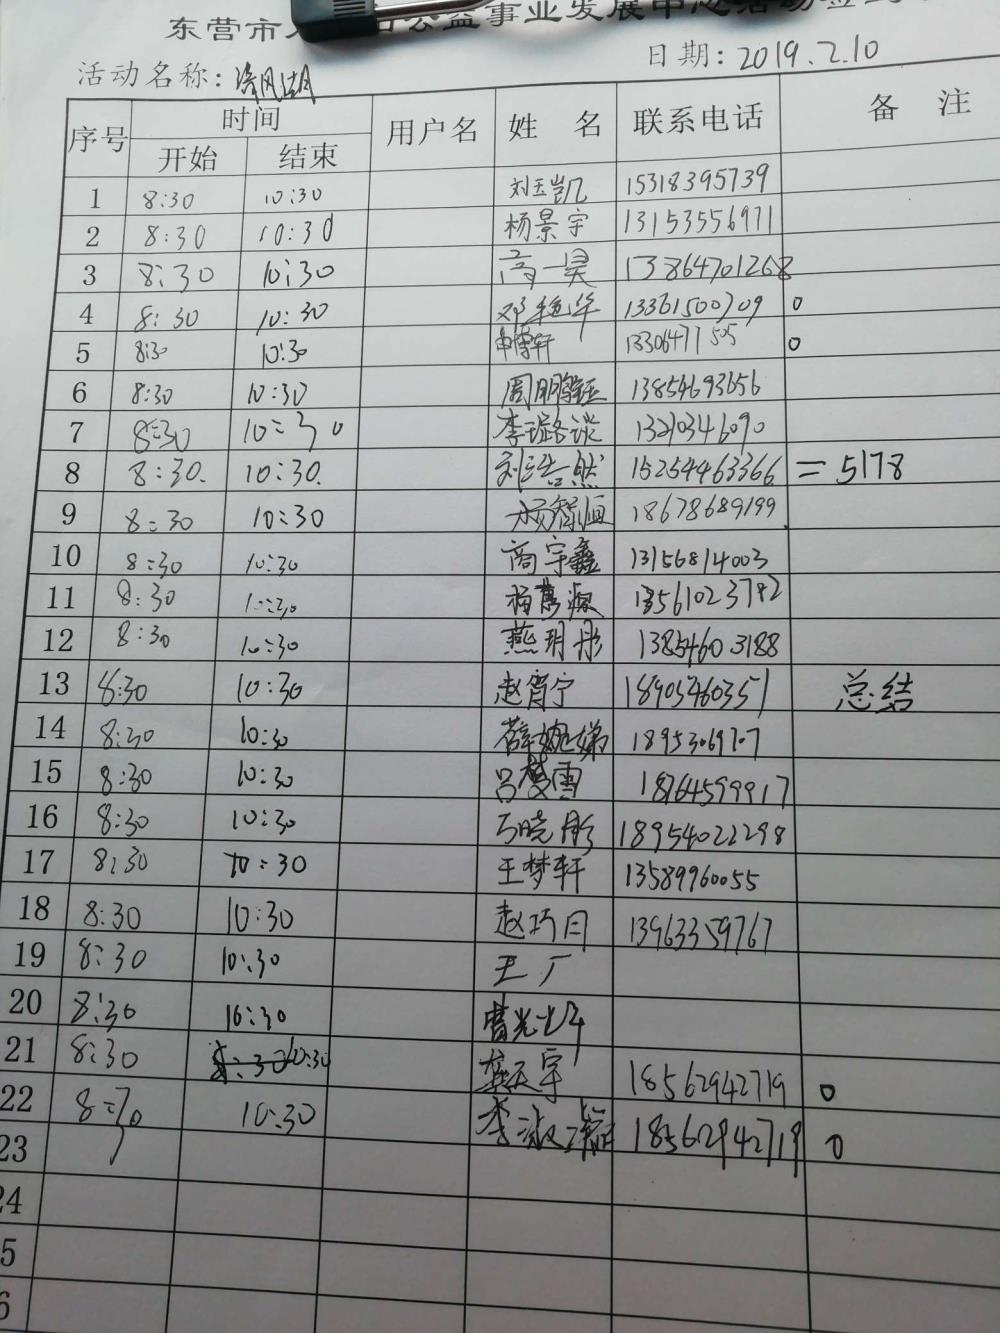 东营市 公益事业发展中心活动签到
活动名称:清风湖 日期:2019.2.10
序号 时间 用户名 姓名 联系电话 备注
开始 结束
1 8:30 10:30 刘玉凯 15318395739
2 8:30 10:30 杨景宇 13153556971
3 8:30 10:30 高一昊 13864701268
4 8:30 10:30 邓艳华 13361500709 0
5 8:30 10:30 申博轩 13306477505 0
6 8:30 10:30 周鹏钰 13854693656
7 8:30 10:30 李璐谈
8 8:30. 10:30. 刘浩然 15254463366 =5178
9 8:30 10:30 智恒 18678689199
10 8:30 10:30 商宇鑫 13156814003
11 8:30 10:30 杨 13561023782
12 8:30 10:30 燕玥彤 13854603188
13 8:30 10:30 赵霄宁 18905460351 总结
14 8:30 10:30 薛婉娣 18953069707
15 8:30 10:30 吕梦雪 18764599917
16 8:30 10:30 石晓彤 18954022298
17 8:30 10:30 王梦轩 13589960055
18 8:30 10:30 赵巧日 13963359767
19 8:30 10:30 王厂
20 8:30 10:30 曹光
21 8:30 10:30 龚天宇 18562942719 0
22 8:30 10:30 李淑 18562942719 0
23
24
5
6